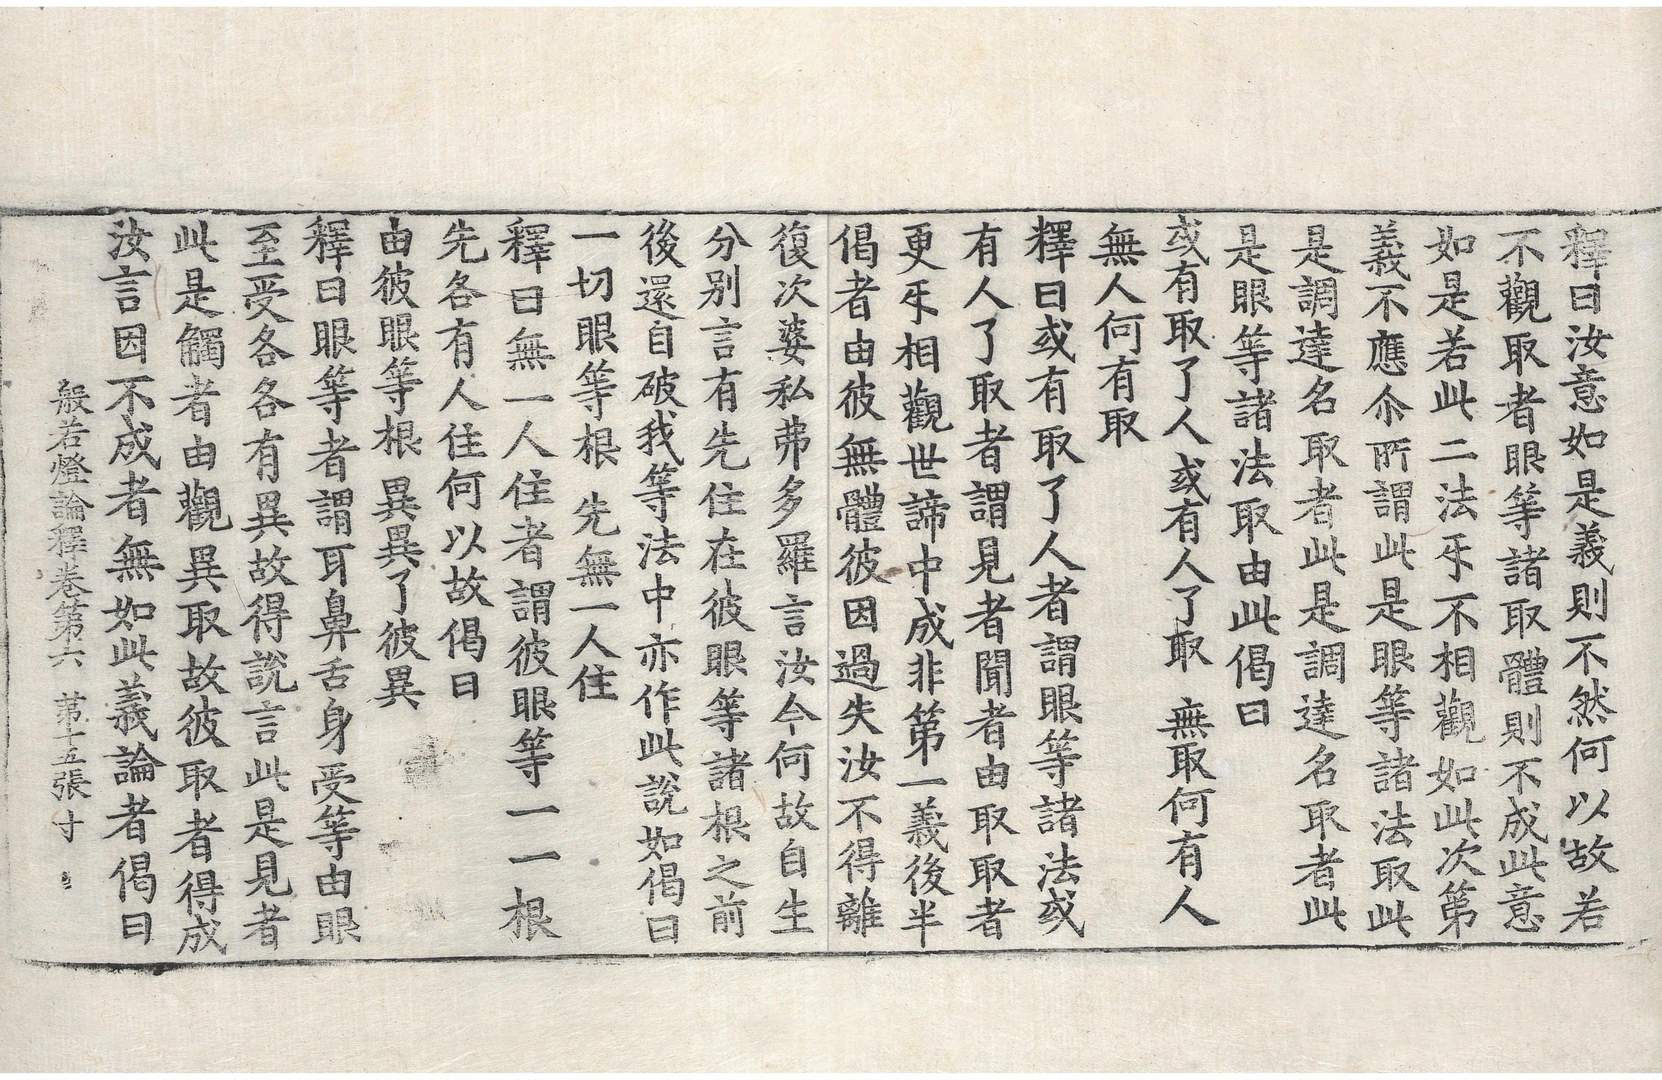 釋曰汝意如是義則不然何以故若
不觀取者眼等諸取體則不成此意
如是若此二法㸦不相觀如此次第
義不應尒所謂此是眼等諸法取此
是調達名取者此是調達名取者此
是眼等諸法取由此偈曰
或有取了人或有人了取 無取何有人
無人何有取
釋曰或有取了人者謂眼等諸法或
有人了取者謂見者聞者由取取者
更㸦相觀世諦中成非第一義後半
偈者由彼無體彼因過失汝不得離
復次婆私弗多羅言汝今何故自生
分別言有先住在彼眼等諸根之前
後還自破我等法中亦作此說如偈曰
一切眼等根 先無一人住
釋曰無一人住者謂彼眼等一一根
先各有人住何以故偈曰
由彼眼等根 異異了彼異
釋曰眼等者謂耳鼻舌身受等由眼
至受各各有異故得說言此是見者
此是觸者由觀異取故彼取者得成
汝言因不成者無如此義論者偈曰
般若燈論釋卷第六 第十五張 寸